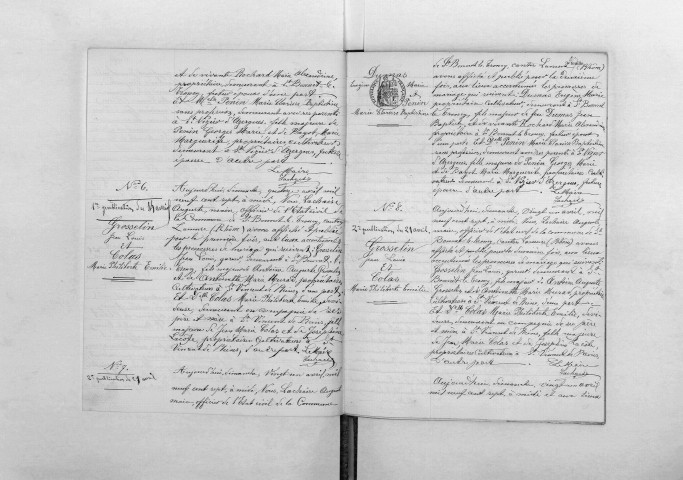 et de vivante Rochard Marie Alexandrine,
propriétaire, demeurant à St Bonnet-le-
Troncy, futur époux d'une part.
Et Mlle Penin Marie Clarisse Baptistine,
sans profession, demeurant avec ses parents
à St Nizier d'Azergues, fille majeure de
Penin Georges Marie et de
Marguerite propriétaires cultivateurs
demeurant à St Nizier d'Azergues, future
épouse d'autre part.
Le Maire
No 6.
1re publication du 14 avril
Grosselin
Jean Louis
et
Colas
Marie Philiberte Emilie
Aujourd'hui, dimanche, quatorze avril mil
neuf cent sept, à midi, Nous Lachaire
Auguste, maire, officier de l'Etat civil de
la Commune de St Bonnet-le-Troncy, canton
Lamure (Rhône) avons affiché et publié
pour la première fois, aux lieux accoutumés
les promesses de mariage qui suivent : Grosselin
Jean Louis, garçon, demeurant à St Bonnet-le-
Troncy, fils majeur de Antoine Auguste Grosselin
et de Antoinette Marie propriétaires
cultivateurs à St Vincent de Reins, d'une part,
Et Dlle Colas Marie Philiberte Emilie,
demeurant en compagnie de ses
père et mère à St Vincent de Reins, fille
majeure de Jean Marie Colas et de Josephine
Lacôte, propriétaires cultivateurs à St
Vincent de Reins, d'autre part. Le Maire
No 7.
2e publication du 21 avril
Aujourd'hui, dimanche, vingt un avril mil
neuf cent sept, à midi, Nous, Lachaire Auguste
maire, officier de l'état civil de la Commune
Dumas
Eugène Marie
et
Penin
Marie Clarisse Baptistine
de St Bonnet le Troncy, canton Lamure (Rhône)
avons affiché et publié pour la deuxième
fois, aux lieux accoutumés les promesses de
mariage qui suivent : Dumas Eugène Marie
propriétaire cultivateur, demeurant à St Bonnet
le Troncy, fils majeur de feu Dumas Jean
Baptiste, et de vivante Rochard Marie Alexandrine
propriétaire à St Bonnet le Troncy, futur époux
d'une part, et Dlle Penin Marie Clarisse Baptistine
sans profession, demeurant avec ses parents à St Nizier
d'Azergues, fille majeure de Penin Georges Marie
et de Marie Marguerite, propriétaires
demeurant à St Nizier d'Azergues, future
épouse d'autre part. Le Maire
No 8.
2e publication du 21 avril
Grosselin
Jean Louis
Et
Colas
Marie Philiberte Emilie
Aujourd'hui, dimanche, vingt un avril, mil
neuf cent sept, à midi, Nous Lachaire Auguste
maire, officier de l'état civil de la commune de St
Bonnet-le-Troncy, canton Lamure (Rhône) avons
affiché et publié pour la deuxième fois, aux lieux
accoutumés les promesses de mariage qui suivent :
Grosselin Jean Louis, garçon demeurant à St
Bonnet-le-Troncy, fils majeur de Antoine Auguste
Grosselin et de Antoinette Marie propriétaires
cultivateurs à St Vincent de Reins d'une part,
Et Dlle Colas Marie Philiberte Emilie,
demeurant en compagnie de ses père
et mère à St Vincent de Reins, fille majeure
de Jean Marie Colas et de Joséphine Lacôte,
propriétaires cultivateurs à St Vincent de Reins
d'autre part. Le Maire
Aujourd'hui dimanche, vingt un avril
mil neuf cent sept, à midi et aux lieux